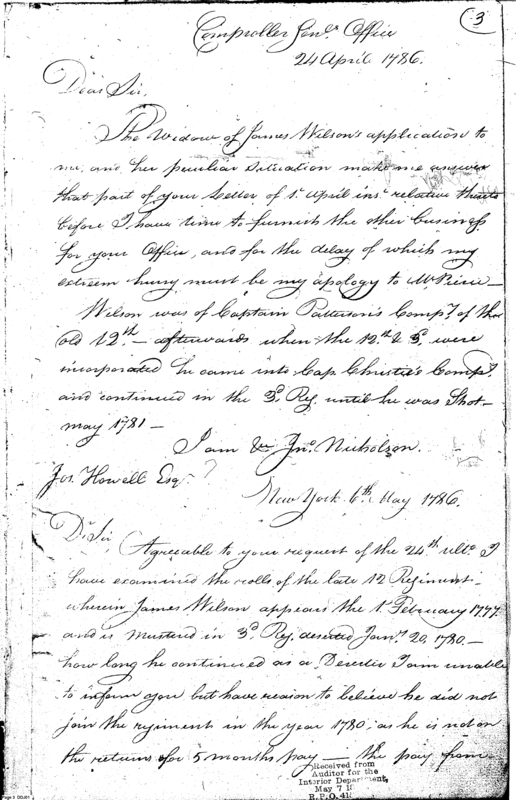 3
Comptroller Genl. Office
24 April 1786.
Dear Sir,
The Widow of James Wilson's application to
me, and her peculiar situation make me answer
that part of your Letter of 1st April inst relative thereto
before I have time to furnish the other business
for your Office, and for the delay of which my
extreem hurry must be my apology to Mr Pierce—
Wilson was of Captain Patterson's Compy. of the
old 12th.— afterwards when the 12th & 3d. were
incorporated he came into Cap Christie's Compy.
and continued in the 3d. Reg. until he was Shot—
may 1781—
I am &c Jno. Nicholson.
Jos. Howell Esqr
New York 6th May 1786.
Dr. Sir
Agreeable to your request of the 24th. ulto. I
have examined the rolls of the late 12 Regiment—
wherein James Wilson appears the 1st. February 1777.
and is mustered in 3d. Reg. deserted Jany. 20, 1780.—
how long he continued as a Deserter I am unable
to inform you but have reason to believe he did not
join the regiment in the year 1780, as he is not on
the returns for 5 months pay — the pay from
Received from
Auditor for the
Interior Department
May 7 1
R.P.O. 41